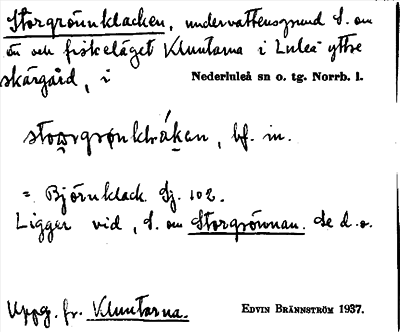 Storgrönnklacken, undervattensgrund S. om
ön och fiskeläget Kluntarna i Luleå yttre
skärgård, i Nederluleå sn o. tg. Norrb. l.
bf. in.
= Björnklack. Sj. 102.
Ligger vid, S. om Storgrönnan. Se d. o.
Uppg. fr. Kluntarna. EDVIN BRÄNNSTRÖM 1937.